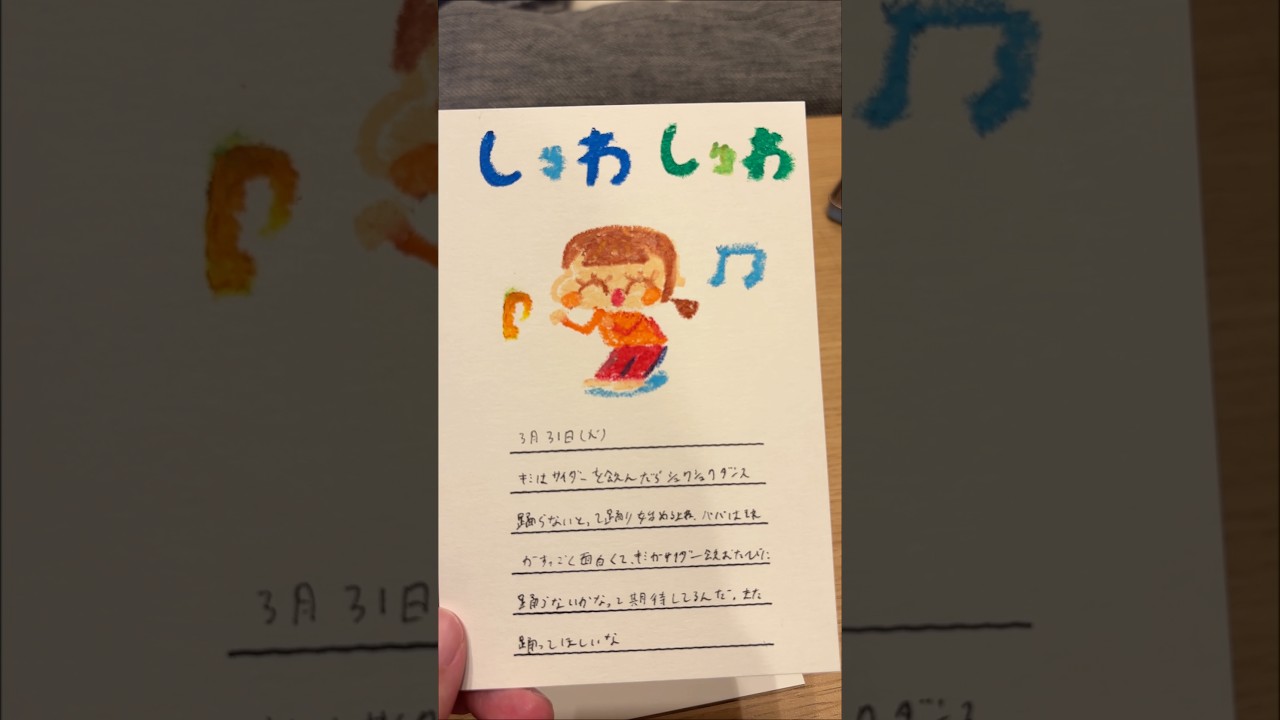 しゅわ しゅわ
3月31日(火)
キミはサイダーを飲んだらシュワシュワダンス
踊らないとって踊り始める上、パパはそれ
がすっごく面白くて、キミがサイダー飲むたびに
踊らないかなって期待してるんだ。また
踊ってほしいな